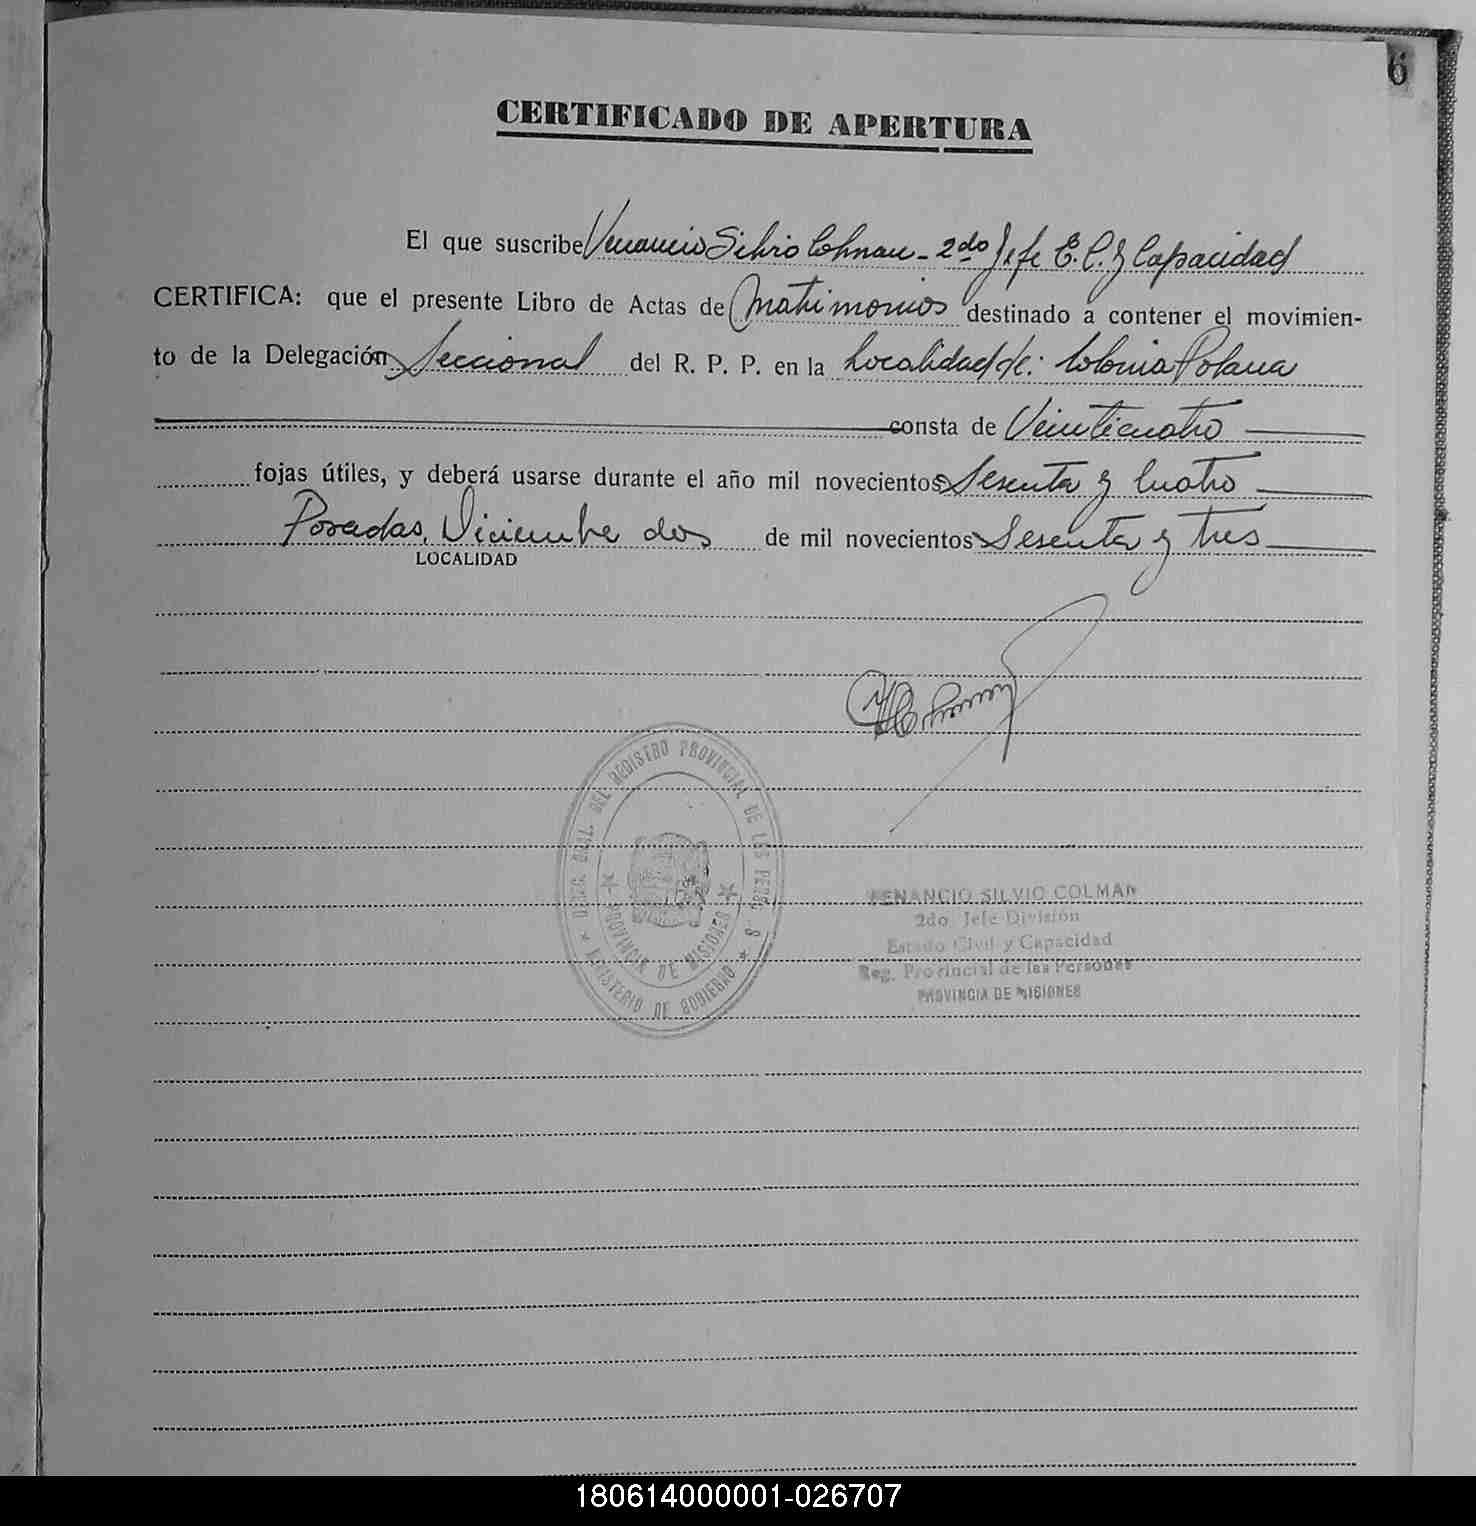 6
CERTIFICADO DE APERTURA
El que suscribe Venancio Silvio Colman - 2do Jefe E. C. y Capacidad
CERTIFICA: que el presente Libro de Actas de Matrimonios destinado a contener el movimien-
to de la Delegación Seccional del R. P. P. en la Localidad de: Colonia Polana
consta de Veinticuatro
fojas útiles, y deberá usarse durante el año mil novecientos Sesenta y Cuatro
Posadas, Diciembre dos de mil novecientos Sesenta y tres
LOCALIDAD
DIREC. GRAL. DEL REGISTRO PROVINCIAL DE LAS PERS. S
PROVINCIA DE MISIONES
MINISTERIO DE GOBIERNO
VENANCIO SILVIO COLMAN
2do. Jefe División
Estado Civil y Capacidad
Reg. Provincial de las Personas
PROVINCIA DE MISIONES
180614000001-026707